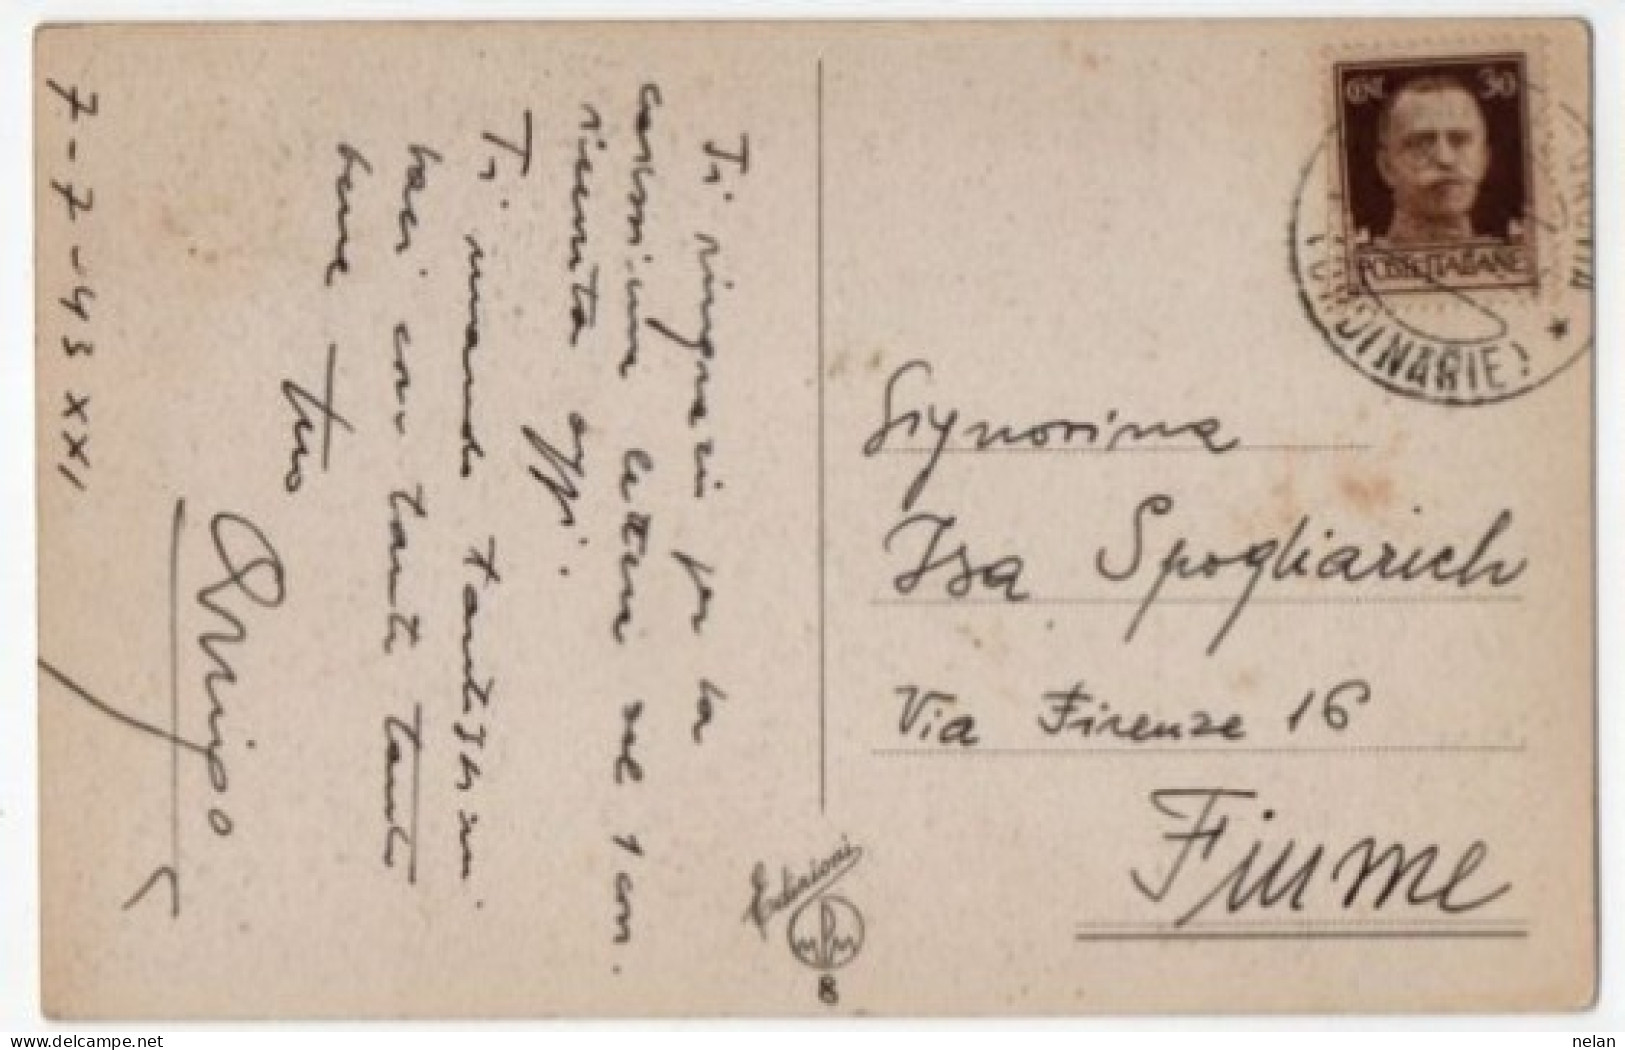 Ti ringrazio per la
carissima lettera del 1 corr.
ricevuta oggi.
Ti mando tantissimi
baci con tanto tanto
bene Tuo
7-7-43 XXI
CENT 30
POSTE ITALIANE
DINARIE)
Signorina
Isa Spogliarich
Via Firenze 16
Fiume
Edizioni
MPM
8
nelan